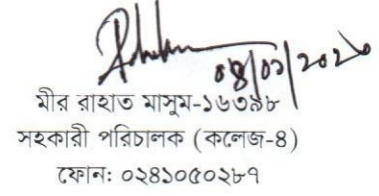 ০৪/০১/২০২০
মীর রাহাত মাসুম-১৬৩৯৮
সহকারী পরিচালক (কলেজ-৪)
ফোন: ০২৪১০৫০২৮৭